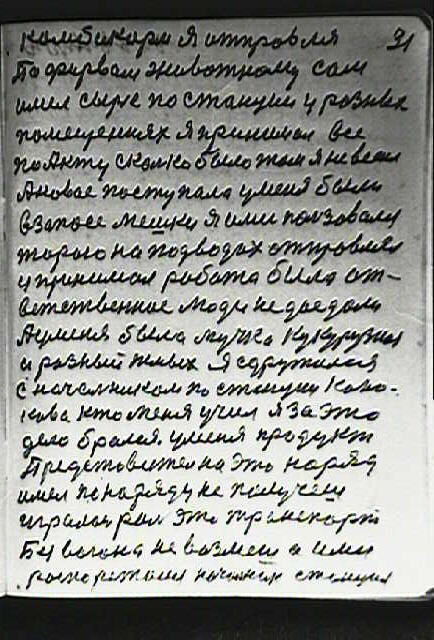 комбикорм я отправля 31
По фирвам животному сам
имел сырье по станции у разных
помещениях я принимал все
по Акту сколко было там я не весил
А новое поступала у меня были
в запосе мешки я ими ползовался
торою на подводах отправлял
и принимал работа была от-
ветственное люди не доедали
А у меня была мучка кукурузная
и разный жмых я сдружился
с началником по станции Кано-
кова кто меня учил я за это
дело брался. у меня продукт
Представител на это наряд
имел по наряду не получеш
играл рол это транспорт
Без вагона не возмеш а ими
распоряжался началник станция